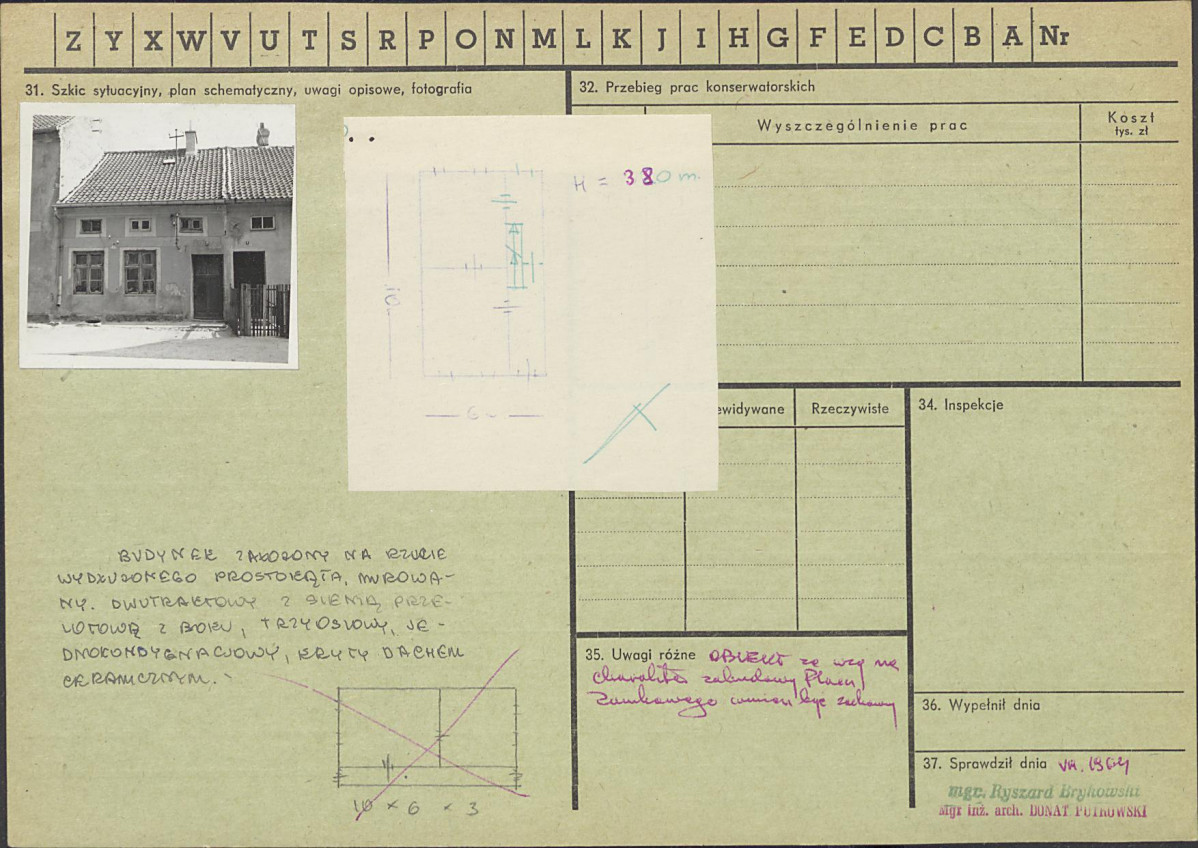 Z Y X W V U T S R P O N M L K J I H G F E D C B A Nr
31. Szkic sytuacyjny, plan schematyczny, uwagi opisowe, fotografia
32. Przebieg prac konserwatorskich
Wyszczególnienie prac
Koszt
tys. zł
H = 380 m.
10
6
ewidywane
Rzeczywiste
34. Inspekcje
BUDYNEK ZAŁOŻONY NA RZUCIE
WYDŁUŻONEGO PROSTOKĄTA, MUROWA-
NY. DWUTRAKTOWY Z SIENIĄ PRZE-
LOTOWĄ Z BOKU, TRZYOSIOWY, JE-
DNOKONDYGNACJOWY, KRYTY DACHEM
CERAMICZNYM.
10 x 6 x 3
35. Uwagi różne OBIEKT ze wzg na
charakter zabudowy Placu
Zamkowego winien być zachowany
36. Wypełnił dnia
37. Sprawdził dnia VII. 1964
mgr. Ryszard Brykowski
Mgr inż. arch. DONAT PUTKOWSKI